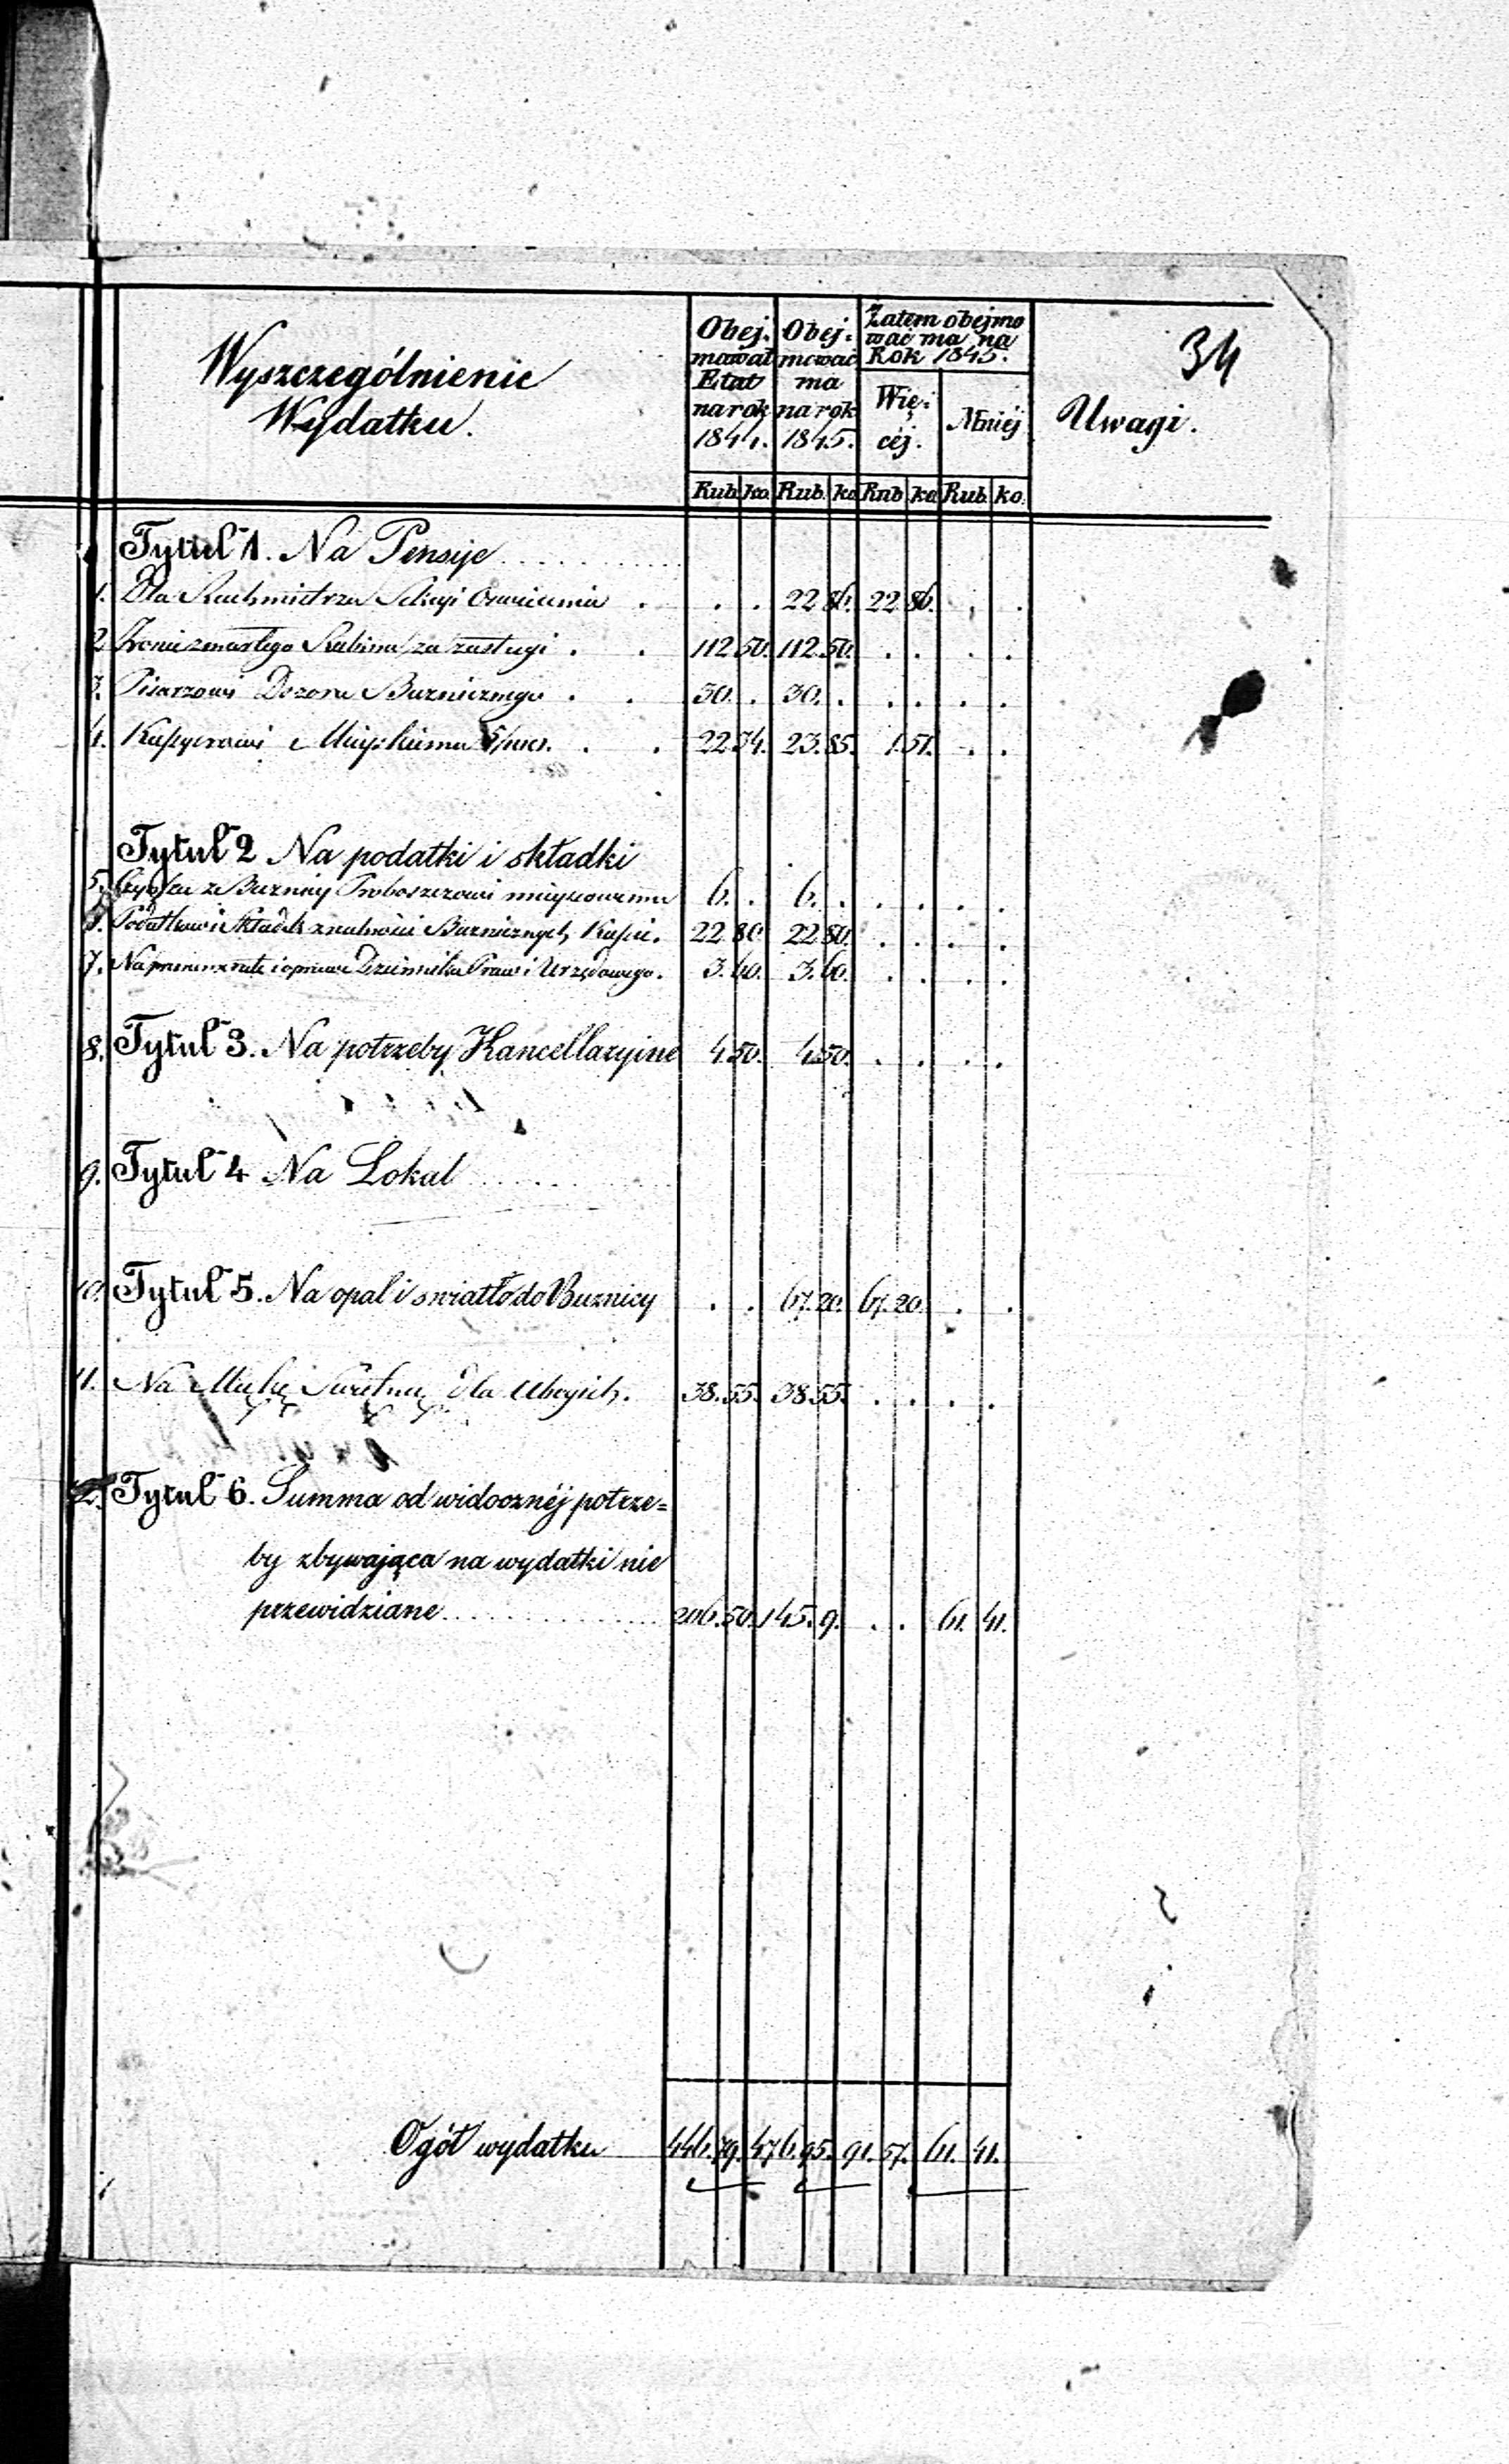 34
Wyszczególnienie
Wydatku.
Obej- mował Etat na rok 1844.
Obej- mować ma na rok 1845.
Zatem obejmo
wać ma na
Rok 1845.
Wię- céj.
Mniéj
Uwagi.
Rub. ko. Rub. ko Rub ko Rub. ko.
Tytuł 1. Na Pensije
1. Dla Rachmistrza Sekcyi . . . 22 86. 22 86. . .
2 Żonie zmarłego Rabina za zasługi . . 112 50. 112 50. . . . .
3. Pisarzowi Dozoru Bużnicznego . . 30. . 30. . . . . .
4. Kassyerowi Mieyskiemu . . 22 34. 23. 85. 1.51. . .
Tytuł 2 Na podatki i składki
5. z Bużnicy Proboszczowi mieyscowemu 6. . 6. . . . . .
6. Składek Bużnicznych 22 80. 22 80. . . . .
7. Na i oprawę Dziennika Praw i Urzędowego. 3. 60. 3. 60. . . . .
8. Tytuł 3. Na potrzeby Kancellaryine 4.50. 4.50. . . . .
9. Tytuł 4 Na Lokal
10. Tytuł 5. Na opał i swiatło do Bużnicy . . 67. 20. 67. 20. . .
11. Na Mąkę dla Ubogich. 38. 55. 38. 55. . . . .
12. Tytuł 6. Summa od widocznéj potrze=
by zbywająca na wydatki nie
przewidziane 206. 50. 145. 9. . . 61. 41.
Ogół wydatku 446. 79. 476. 95. 91. 57. 61. 41.